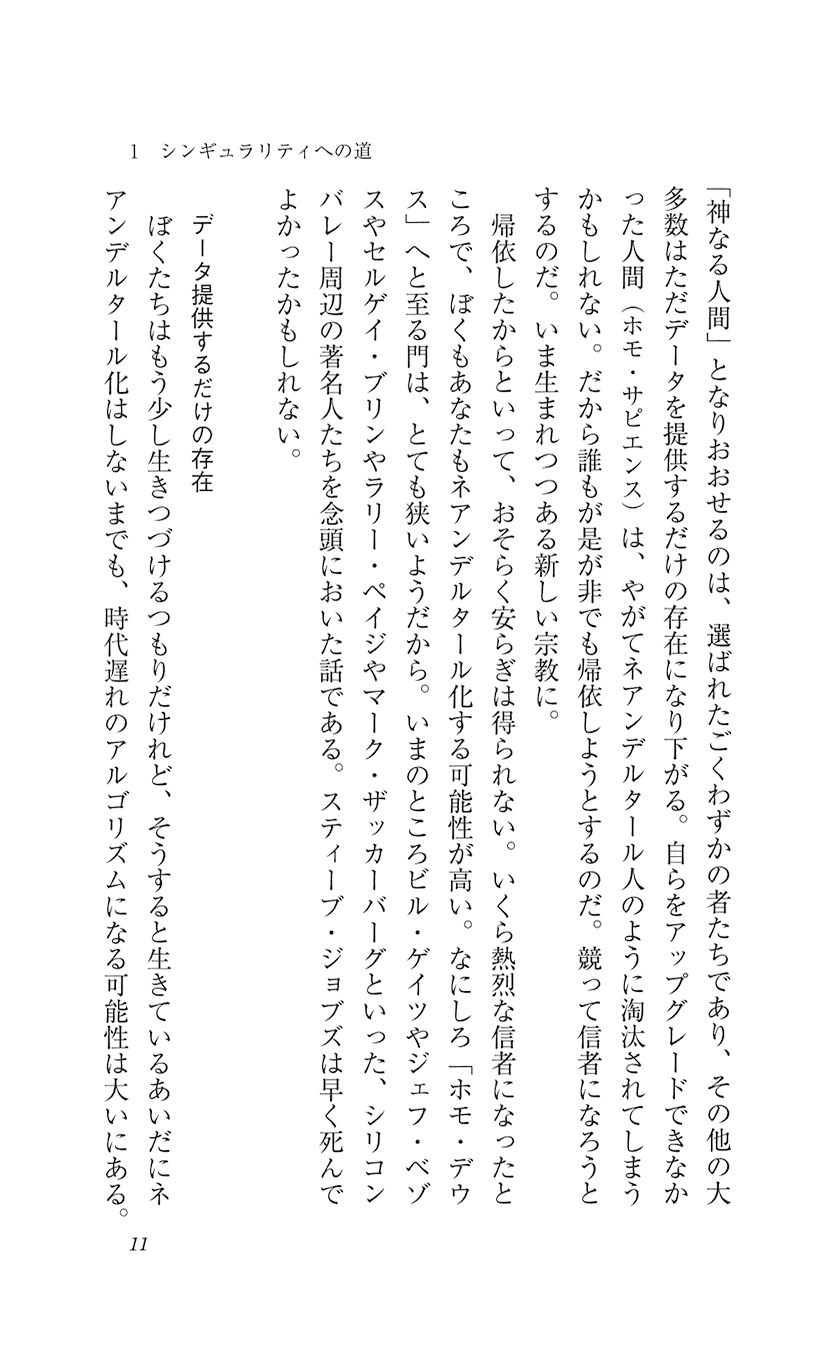 1 シンギュラリティへの道
「神なる人間」となりおおせるのは、選ばれたごくわずかの者たちであり、その他の大
多数はただデータを提供するだけの存在になり下がる。自らをアップグレードできなか
った人間（ホモ・サピエンス）は、やがてネアンデルタール人のように淘汰されてしまう
かもしれない。だから誰もが是が非でも帰依しようとするのだ。競って信者になろうと
するのだ。いま生まれつつある新しい宗教に。
帰依したからといって、おそらく安らぎは得られない。いくら熱烈な信者になったと
ころで、ぼくもあなたもネアンデルタール化する可能性が高い。なにしろ「ホモ・デウ
ス」へと至る門は、とても狭いようだから。いまのところビル・ゲイツやジェフ・ベゾ
スやセルゲイ・ブリンやラリー・ペイジやマーク・ザッカーバーグといった、シリコン
バレー周辺の著名人たちを念頭においた話である。スティーブ・ジョブズは早く死んで
よかったかもしれない。
データ提供するだけの存在
ぼくたちはもう少し生きつづけるつもりだけれど、そうすると生きているあいだにネ
アンデルタール化はしないまでも、時代遅れのアルゴリズムになる可能性は大いにある。
11